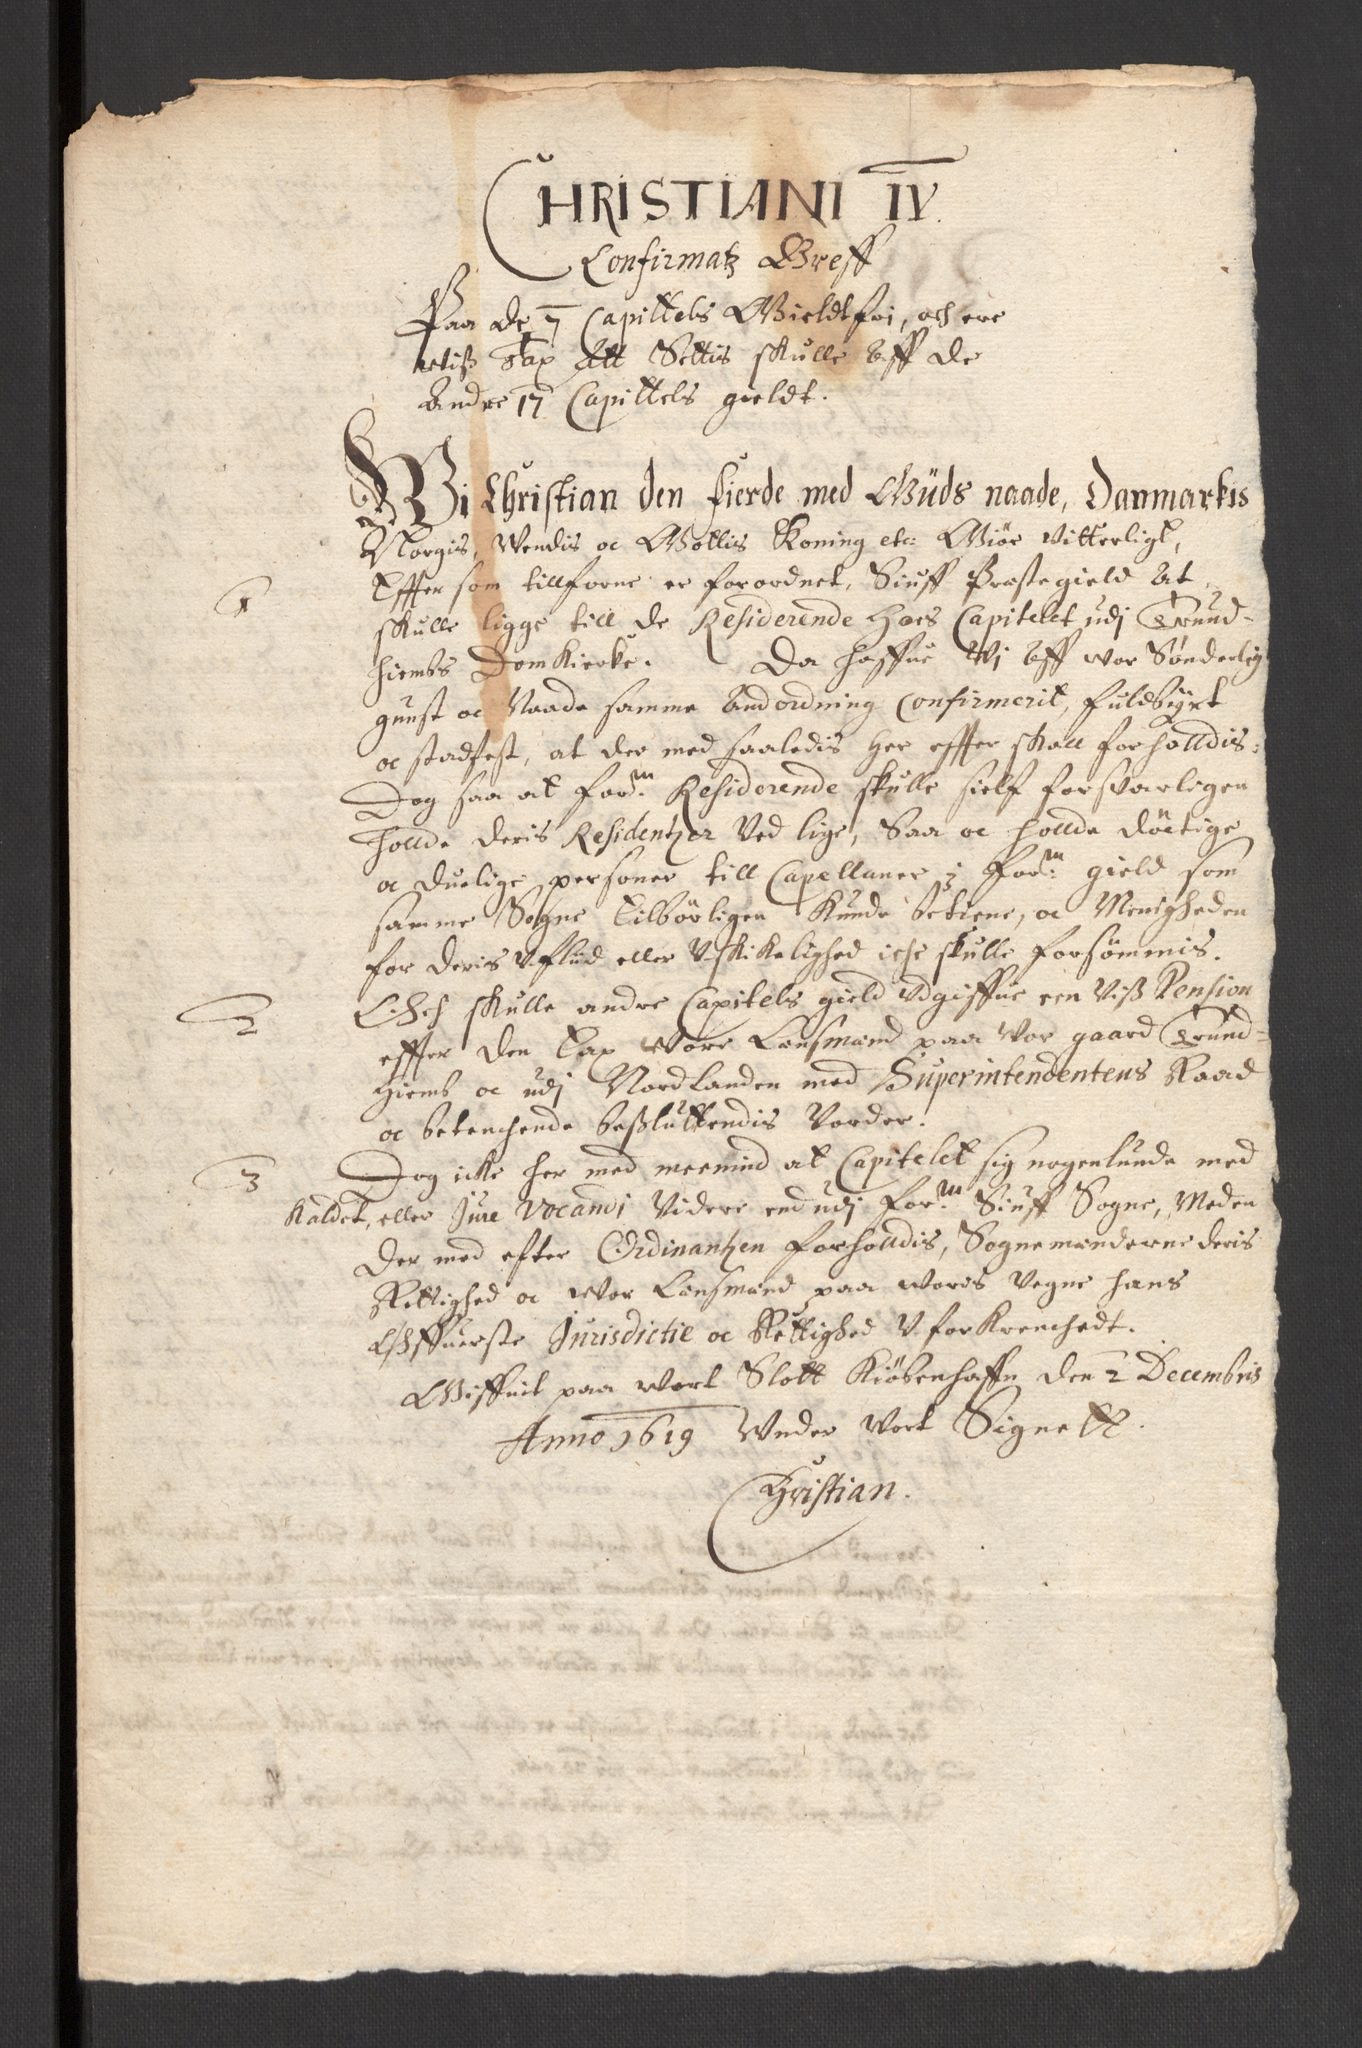 CHRISTIANI IV.
Confirmatz Breff
Paa de 7 Capittels Gieldt fri, och ere
wiß Tax Att Settis skulle Aff de
Andre 17 Capittels gieldt.
Wi Christian den fierde med Guds naade, Danmarkis
Norgis, Wendis oc Gottis Koning etc: Giøre vitterligt,
1 Effter som tillforne er forordnet, Siuff Præstegield At
skulle ligge till de Residerende Hoes Capitelet udj Trund-
hiembs DomKierke. Da haffue Wj Aff wor Sønderlig
gunst oc Naade samme Andordning Confirmerit, fuldbyrt
oc stadfest, at der med saaledis her effter skall forholldis.
Dog saa at for.m Residerende skulle sielf forsvarligen
hollde deris Residentzer Ved lige, Saa oc hollde döctige
oc duelige personer till Capellaner i for.m gield som
samme Sogne Tilbörligen Kunde betiene, oc Menigheden
for deris Vflid eller Vskikelighed iche skulle forsömmis.
2 Och skulle andre Capitels gield vdgiffue een Viß Pension
effter den Tax Wore Lensmænd paa Vor gaard Trund-
hiemb oc udj Nordlanden med Superintendentens Raad
oc betenchende beßluttendis Vorder.
3 Dog icke her med meenind at Capitelet sig nogenlunde med
Kaldet, eller Jure Vocandi Videre end udj for.m Siuff Sogne, Meden
der med efter Ordinantzen forholldis, Sognemænderne deris
Rettighed oc Wor Lensmænd paa Wores Vegne hans
Øffuerste Jurisdictie oc Rettighed Vforkrenchedt.
Giffuit paa Wort Slott Kiöbenhaffn den 2 Decembris
Anno 1619 Wnder Wort Signett.
Christian.